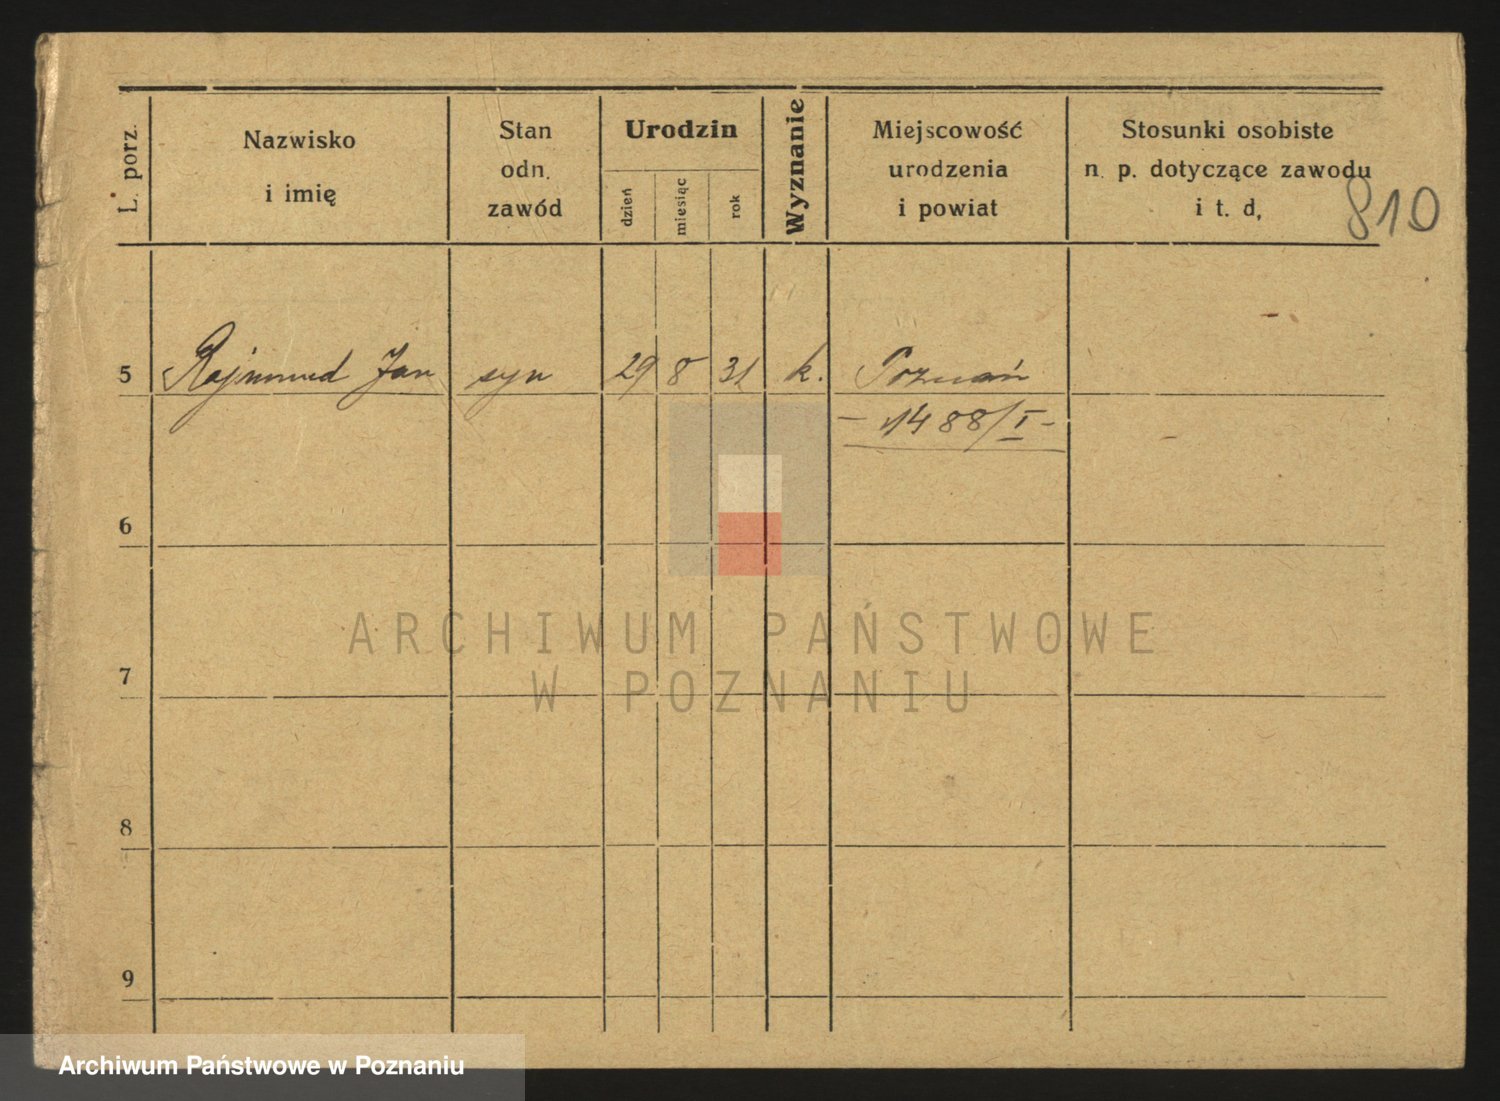 L. porz.
Nazwisko
i imię
Stan
odn.
zawód
Urodzin
dzień
miesiąc
rok
Wyznanie
Miejscowość
urodzenia
i powiat
Stosunki osobiste
n. p. dotyczące zawodu
i t. d,
810
5 Rajmund Jan syn 29 8 31 k. Poznań
- 1488/I -
6
7
8
9
ARCHIWUM PAŃSTWOWE
W POZNANIU
Archiwum Państwowe w Poznaniu